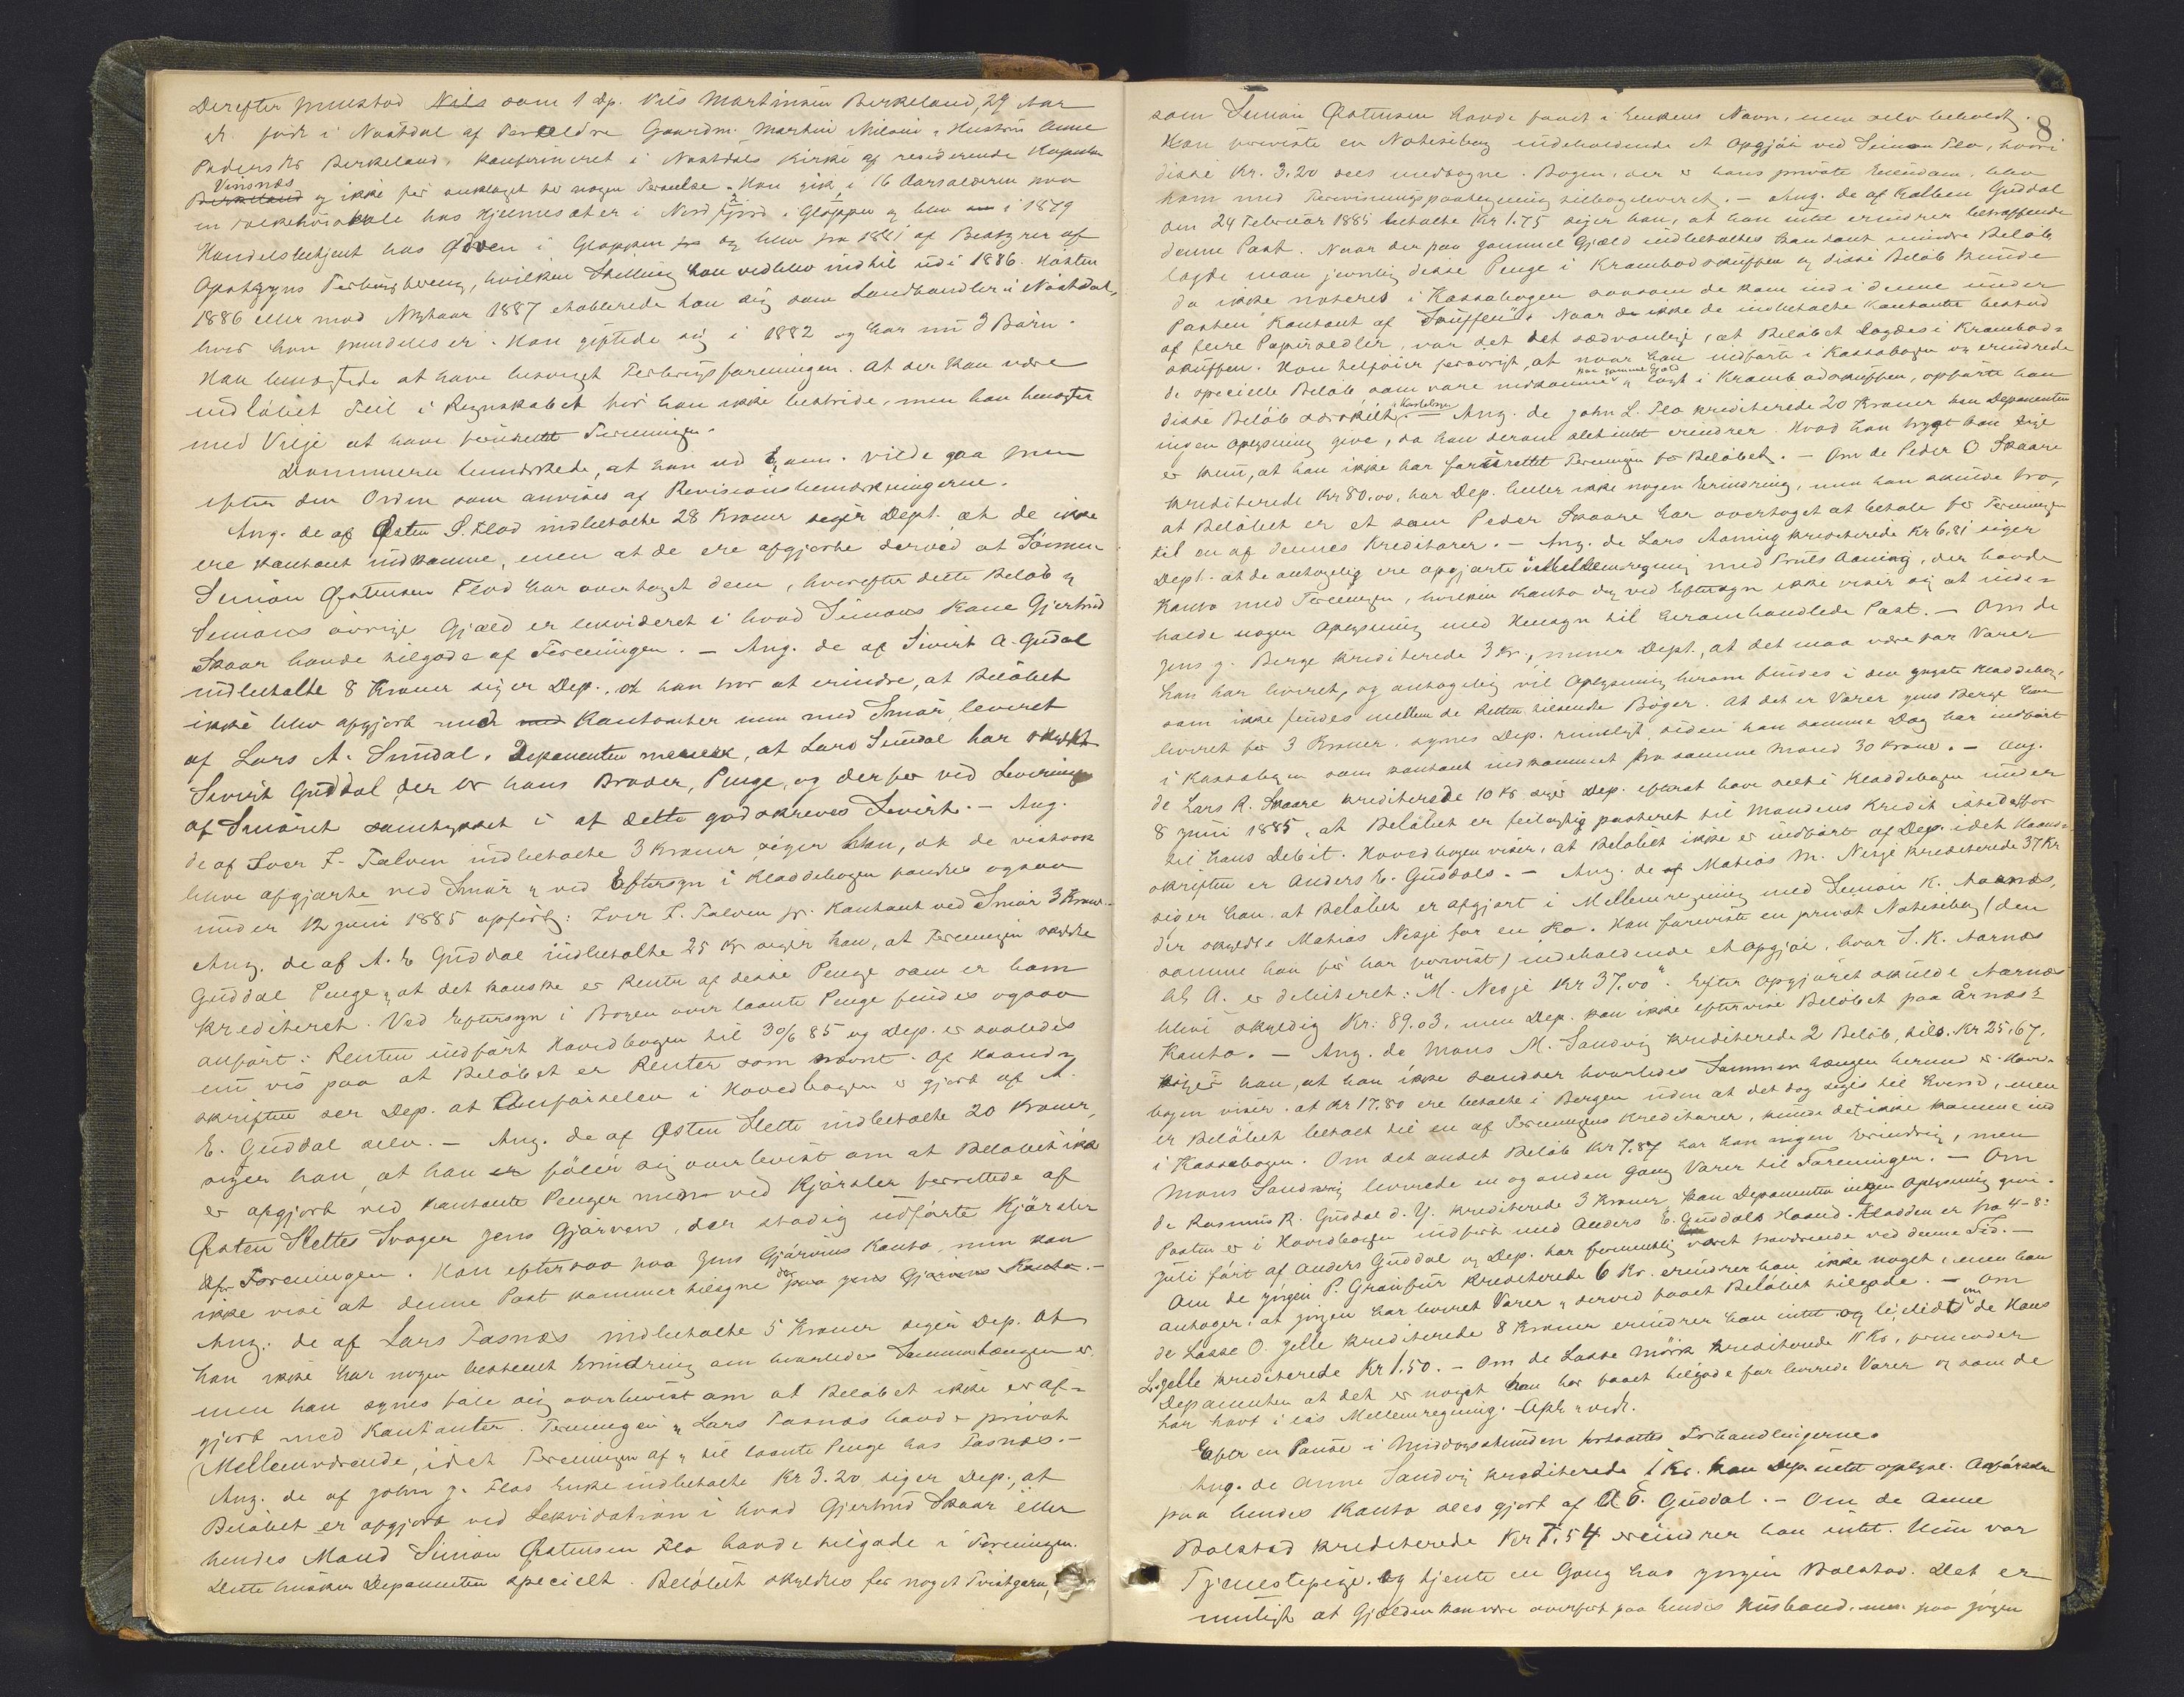 Derefter fremstod Nils som 1 Dp. Nils Martinsen Birkeland, 29 Aar
gl. født i Naustdal af Forældre Gaardm. Martin Nilsen & Hustru Anne
Pedersdtr Birkeland, konfirmeret i Naustdals Kirke af residerende Kapellan
Vensnæs
Birkeland og ikke før anklaget for nogen Forseelse. Han gik i 16 Aarsalderen paa
en Folkehöiskole hos Hjelmesæter i Nordfjord i Gloppen og blev i 1879
Handelsbetjent hos Ödven i Gloppen og blev fra 1881 af Bestyrer af
Forbrugsforening, hvilken Stilling han vedblev indtil ud i 1886. Hösten
1886 eller mod Nytaar 1887 etablerede han sig som Landhandler i Naustdal,
hvor han fremdeles er. Han giftede sig i 1882 og har nu 3 Börn.
Han benægtede at have besveget Forbrugsforeningen. At der kan være
indlöbet Feil i Regnskabet tör han ikke bestride, men han benægter
med Vilje at have forurettet Foreningen.
Dommeren bemærkede, at han ud Exam. vilde gaa frem
efter den Orden som anvises af Revisionsbemærkningerne.
Ang. de af Østen S. Flod indbetalte 28 Kroner siger Dept. at de ikke
ere kontant indkomne, men at de ere afgjorte derved at Sönnen
Simon Østensen Flod har overtaget dem, hvorefter dette Belöb &
Simons övrige Gjæld er likvideret i hvad Simons Kone Gjertrud
Skaar havde tilgode af Foreningen. – Ang. de af Sivert A. Gudal
indbetalte 8 Kroner siger Dep., at han tror at erindre, at Belöbet
ikke blev afgjort med med Kontanter men med Smör, leveret
af Lars A. Sundal. Deponenten mener, at Lars Sundal har skyldt
Sivert Guddal, der er hans Broder, Penge, og derfor ved Levering
af Smöret samtykket i at dette godskreves Sivert. – Ang.
de af Iver J. Talven indbetalte 3 Kroner siger han, at de vistnok
bleve afgjorte ved Smör & ved Eftersyn i Kladdebogen fandtes ogsaa
under 12 Juni 1885 opfört: Iver J. Talven pr. Kontant ved Smör 3 Kroner.
Ang. de af A. E Guddal indbetalte 25 Kr siger han, at Foreningen skyldte
Guddal Penge, & at det kanske er Renter af disse Penge som er ham
krediteret. Ved Eftersyn i Bogen over laante Penge findes ogsaa
anfört: Renten indfört Hovedbogen til 30/6 85 og Dep. er saaledes
nu vis paa at Belöbet er Renter som nævnt. Af Haand-
skriften ser Dep. at Anförselen i Hovedbogen er gjort af A.
E. Guddal selv. – Ang. de af Østen Slette indbetalte 20 Kroner,
siger han, at han er föler sig overbevist om at Belöbet ikke
er afgjort ved kontante Penger men ved Kjörsler forrettede af
Østen Slettes Svoger Jens Gjörven, der stadig udförte Kjörsler
for Foreningen. Han eftersaa paa Jens Gjörvens Konto, men kan
ikke vise at denne Post kommer tilsyne der paa Jens Gjörvens Konto. –
Ang. de af Lars Fasnæs indbetalte 5 Kroner siger Dep. at
han ikke har nogen bestemt Erindring om hvorledes Sammenhængen er
men han synes föle sig overbevist om at Belöbet ikke er af-
gjort med Kontanter. Foreningen & Lars Fasnæs havde privat
Mellemværende, idet Foreningen af & til laante Penge hos Fasnæs. –
Ang. de af John J. Flos Enke indbetalte Kr 3.20 siger Dep., at
Belöbet er opgjort ved Likvidation i hvad Gjertrud Skaar eller
hendes Mand Simon Østensen Flo havde tilgode i Foreningen.
Dette husker Deponenten specielt. Belöbet skyldtes for noget Tvistgarn,
8
som Simon Østensen havde faaet i Enkens Navn, men selv beholdt.
Han foreviste en Notitsebog indeholdende et Opgjör ved Simon Flo, hvori
disse Kr. 3,20 sees medtagne. Bogen, der er hans private Eiendom, blev
ham med Forevisningspaategning tilbageleveret. – Ang. de af Kolben Guddal
den 24 Februar 1885 betalte Kr 1.75 siger han, at han intet erindrer betræffende
denne Post. Naar der paa gammel Gjæld indbetaltes kontant mindre Belöb
lagde man jevnlig disse Penge i Kramboskuffen og disse Belöb kunde
da ikke noteres i Kassabogen saasom de kom ind i denne under
Posten "Kontant af Skuffen". Naar de ikke de indbetalte Kontanter bestod
af flere Papirsedler, var det det sædvanlige, at Belöbet lagdes i Krambod-
skuffen. Han tilföier forövrigt, at naar han indförte i Kassabogen og erindrede
de specielle Belöb som vare indkomne paa gammel Gjæld & lagt i Krambodskuffen, opförte han
disse Belöb særskilt i Kassabogen. – Ang. de John L. Flo krediterede 20 Kroner kan Deponenten
ingen Oplysning give, da han derom aldeles intet erindrer. Hvad han trygt kan sige
er kun, at han ikke har forurettet Foreningen for Belöbet. – Om de Peder O Skaare
krediterede Kr 80.00, har Dep. heller ikke nogen Erindring, men han skulde tro,
at Belöbet er et som Peder Skaare har overtaget at betale for Foreningen
til en af dennes Kreditorer. – Ang. de Lars Aaning krediterede Kr 6,81 siger
Dept. at de antagelig ere opgjorte i Mellemregning med Truls Aaning, der havde
Konto med Foreningen, hvilken Konto dog ved Eftersyn ikke viser sig at inde-
holde nogen Oplysning med Hensyn til heromhandlede Post. – Om de
Jens J. Berge krediterede 3 Kr., mener Dept., at det maa være for Varer
han har leveret, og antagelig vil Oplysning herom findes i den yngste Kladdebog,
som ikke findes mellem de Retten tilsendte Böger. At det er Varer Jens Berge har
leveret for 3 Kroner, synes Dep. rimeligt, siden han samme Dag har indfört
i Kassabogen som kontant indkommet fra samme Mand 30 Kroner. – Ang.
de Lars R. Skaare krediterede 10 Kr siger Dep. efterat have seet i Kladdebogen under
8 Juni 1885, at Belöbet er feilagtig posteret til Mandens Kredit istedetfor
til hans Debit. Hovedbogen viser, at Belöbet ikke er indfört af Dep. idet Haand-
skriften er Anders E. Guddals. – Ang. de af Matias M. Nesje krediterede 37 Kr
siger han, at Belöbet er afgjort i Mellemregning med Simon K. Aarnæs,
der skyldte Matias Nesje for en Ko. Han foreviste en privat Notitsebog (den
samme han för har forevist) indeholdende et Opgjör, hvor S. K. Aarnæs
bl. A. er debiteret: "M. Nesje Kr 37.00". Efter Opgjöret skulde Aarnæs
blive skyldig Kr: 89.03, men Dep. kan ikke eftervise Belöbet paa Årnæs's
Konto. – Ang. de Mons M. Sandvig krediterede 2 Belöb, tils. Kr 25,67,
siger han, at han ikke sandser hvorledes Sammenhængen hermed er. Hoved-
bogen viser at Kr 17.80 ere betalte i Bergen uden at det dog siges til hvem, men
er Belöbet betalt til en af Foreningens Kreditorer, kunde det ikke komme ind
i Kassabogen. Om det andet Belöb Kr 7.87 har han ingen Erindring, men
Mons Sandvig leverede en og anden Gang Varer til Foreningen. – Om
de Rasmus R. Guddal d. Y. krediterede 3 Kroner kan Deponenten ingen Oplysning give.
Posten er i Hovedbogen indfört med Anders E. Guddals Haand. Kladden er fra 4–8:
Juli fört af Anders Guddal og Dep. har formentlig været fraværende ved denne Tid. –
Om de Jörgen P. Grönfur krediterede 6 Kr. erindrer han ikke noget, men han
antager, at Jörgen har leveret Varer & derved faaet Belöbet tilgode. – Om
de Lasse O. Jelle krediterede 8 Kroner erindrer han intet og ligeledes om de Hans
L. Jelle krediterede Kr 1.50. – Om de Lasse Mörk krediterede 11 Kr, formoder
Deponenten at det er noget han har faaet tilgode for leverede Varer og som de
har havt i lös Mellemregning. Opl. & vedt.
Efter en Pause i Middagsstunden fortsattes Forhandlingerne.
Ang. de Anne Sandvig krediterede 1 Kr. kan Dep. intet oplyse. Anförselen
paa hendes Konto sees gjort af A E. Guddal. – Om de Anne
Bolstad krediterede Kr 7,54 erindrer han intet. Hun var
Tjenestepige og tjente en Gang hos Jörgen Bolstad. Det er
muligt at Gjælden kan være overfört paa hendes Husbond, men paa Jörgen